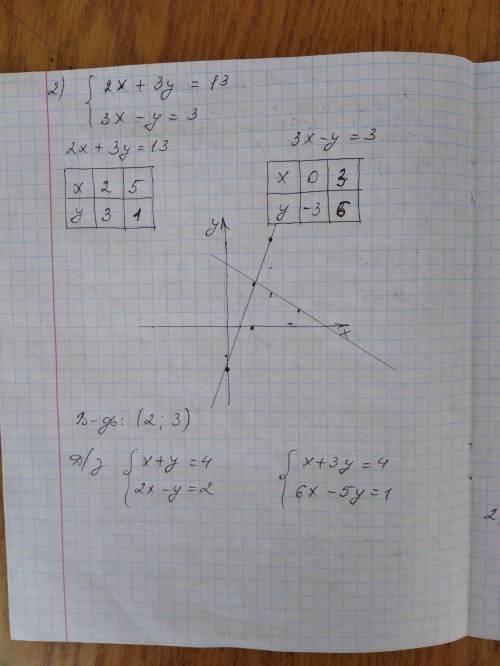 2) { 2x + 3y = 13
3x - y = 3
2x + 3y = 13
x 2 5
y 3 1
3x - y = 3
x 0 3
y -3 6
y
x
В-дь: (2; 3)
Д/з { x + y = 4
2x - y = 2
{ x + 3y = 4
6x - 5y = 1
2